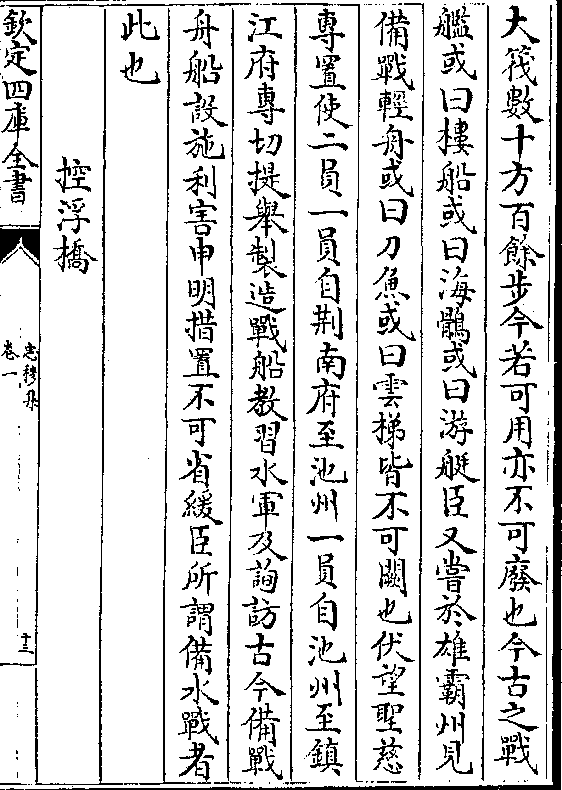 大筏數十方百餘步今若可用亦不可廢也今古之戰
艦或曰樓船或曰海鶻或曰游艇臣又嘗於雄霸州見
備戰輕舟或曰刀魚或曰雲梯皆不可闕也伏望聖慈
專置使二員一員自荆南府至池州一員自池州至鎮
江府專切提舉製造戰船教習水軍及詢訪古今備戰
舟船設施利害申明措置不可省緩臣所謂備水戰者
此也
控浮橋
欽定四庫全書
忠穆集
卷一
十三